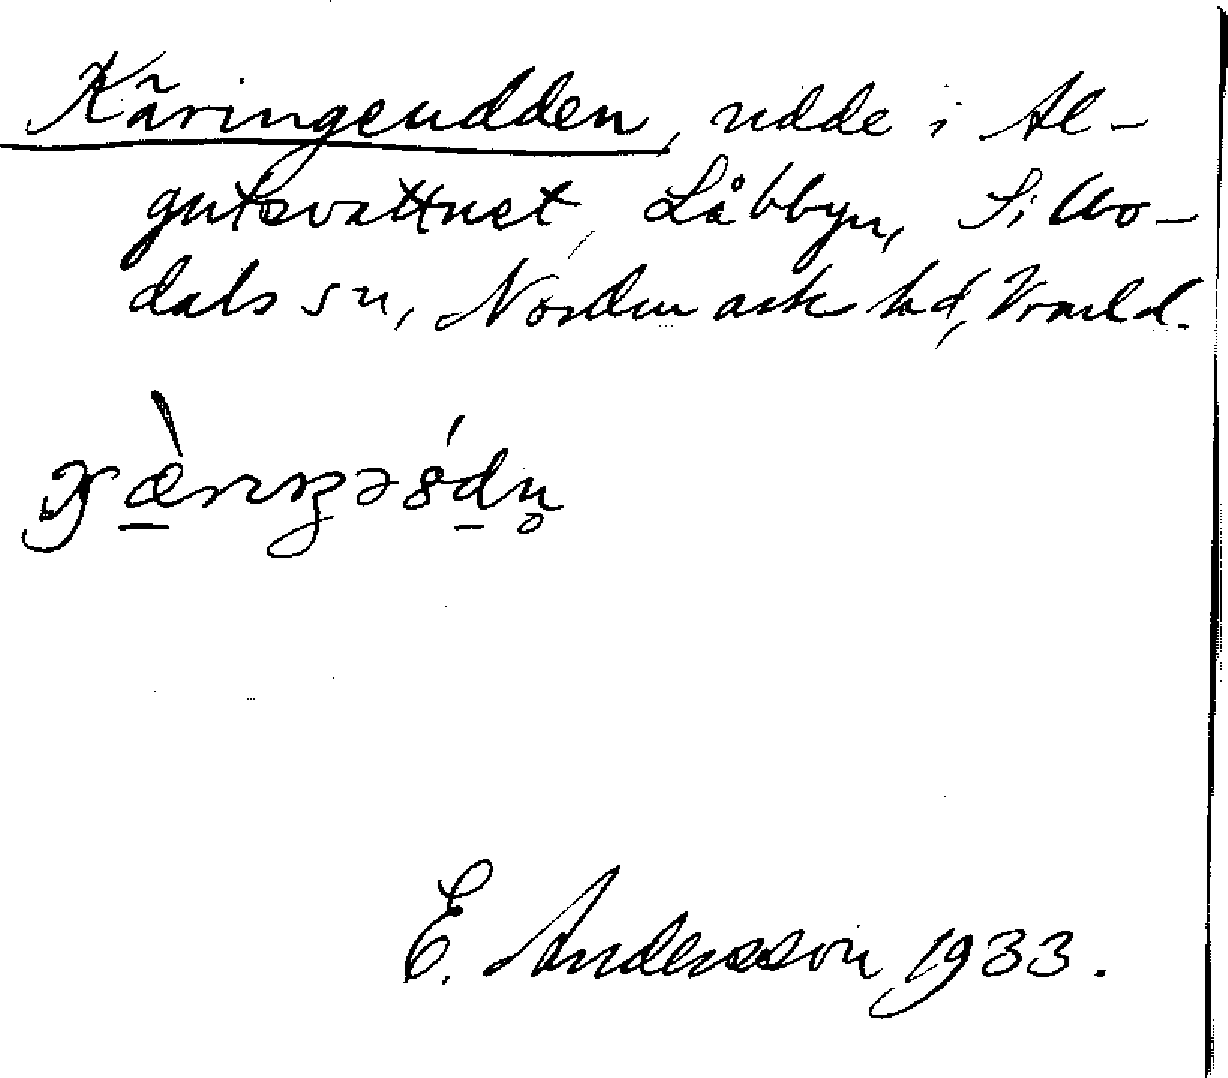 Käringeudden, udde i Al-
gutsvattnet, Låbbyn, Sillbo-
dals sn, Nordmark hd, Värmld.
E. Andersson 1933.